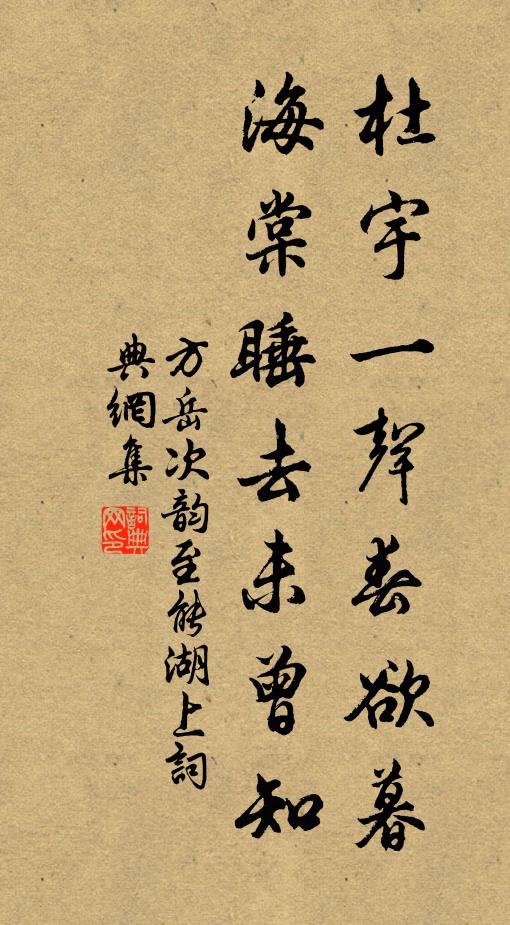 杜宇一聲春欲暮
海棠睡去未曾知
方岳次韵至能湖上詞
典網集
詞典
网印